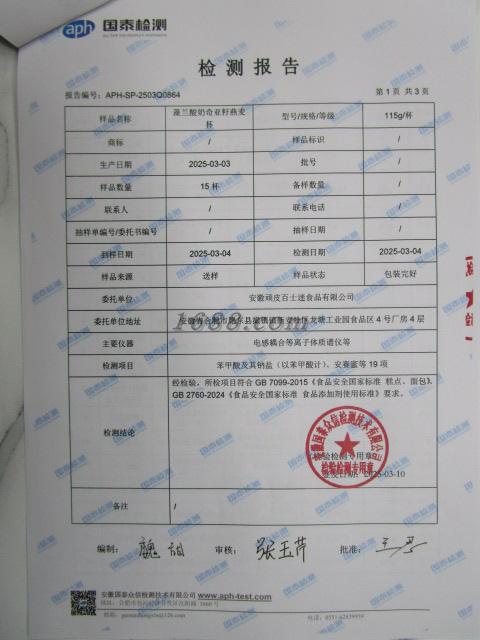 aph 国泰检测
检测报告
报告编号：APH-SP-2503Q0864 第 1 页 共 3 页
样品名称 藻兰酸奶奇亚籽燕麦杯 型号/规格/等级 115g/杯
商标 / 样品标识 /
生产日期 2025-03-03 批号 /
样品数量 15 杯 备样数量 /
联系人 / 联系电话 /
抽样单编号/委托书编号 / 抽样日期 /
到样日期 2025-03-04 检测日期 2025-03-04
样品来源 送样 样品状态 包装完好
委托单位 安徽顽皮百士迷食品有限公司
委托单位地址 安徽省合肥市肥东县撮镇镇 龙塘工业园食品区 4 号厂房 4 层
1688.com
主要仪器 电感耦合等离子体质谱仪等
检测项目 苯甲酸及其钠盐（以苯甲酸计）、安赛蜜等 19 项
经检验，所检项目符合 GB 7099-2015《食品安全国家标准 糕点、面包》、
GB 2760-2024《食品安全国家标准 食品添加剂使用标准》要求。
检测结论
安徽国泰众信检测技术有限公司
检验检测专用章
签发日期：2025-03-10
备注 /
编制： 审核：张玉芹 批准：
安徽国泰众信检测技术有限公司 www.aph-test.com